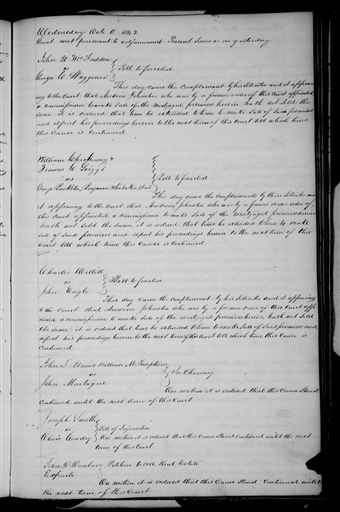 Wednesday Oct. 1842
Court met pursuant to adjournment Present same as on yesterday
John W. McFadden
vs Bill to foreclose
George C.
This day came the Complainant by his Solicitor and it appearing
to the Court that Andrew Johnston who was by a former order of this Court appointed
a commissioner to make Sale of the mortgaged premises herein hath not sold the
same it is ordered that time be extended to him to make Sale of Said premises
and report his proceedings herein to the next term of this Court till which time
this Cause is Continued
William &
Francis C.
vs Bill to foreclose
George
This day came the Complainants by their Solicitor and
it appearing to the Court that Andrew Johnston who was by a former order of
this Court appointed a Commissioner to make Sale of the Mortgaged premises herein
hath not sold the same it is ordered that time be extended to him to make
Sale of Said premises and report his proceedings herein to the next term of this
Court till which time this Cause is Continued
Charles Willis
vs Bill to foreclose
John
This day came the Complainant by his Solicitor and it appearing
to this Court that Andrew Johnston who was by a former order of this Court appointed
a commissioner to make Sale of the mortgaged premises herein hath not sold
the same it is ordered that time be extended to him to make Sale of Said premises and
report his proceedings herein to the next term of this Court till which time this Cause is
Continued
John William
vs In Chancery
John Montague
On motion it is ordered that this Cause Stand
Continued until the next term of this Court
Joseph Smith
vs Bill of Injunction
On motion it is ordered that this Cause Stand Continued until the next
term of this Court
John Petition to sell Real Estate
Exparte
On motion it is ordered that this Cause Stand Continued until
the next term of this Court